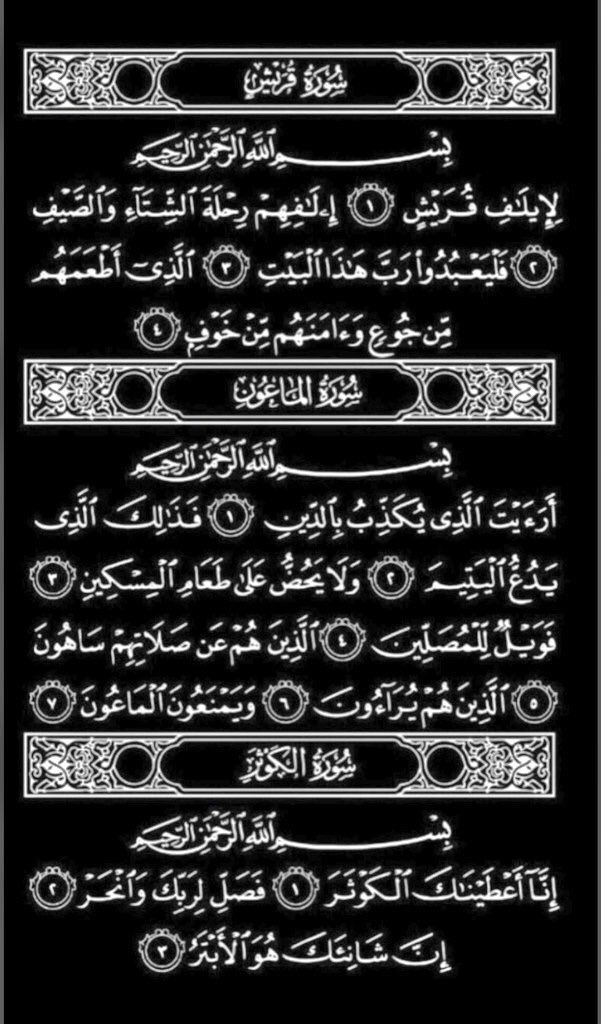 سُورَةُ قُرَيْشٍ
بِسْمِ اللَّهِ الرَّحْمَٰنِ الرَّحِيمِ
لِإِيلَافِ قُرَيْشٍ ١ إِۦلَافِهِمْ رِحْلَةَ الشِّتَآءِ وَالصَّيْفِ
٢ فَلْيَعْبُدُوا۟ رَبَّ هَٰذَا الْبَيْتِ ٣ الَّذِىٓ أَطْعَمَهُم
مِّن جُوعٍ وَءَامَنَهُم مِّنْ خَوْفٍ ٤
سُورَةُ المَاعُونِ
بِسْمِ اللَّهِ الرَّحْمَٰنِ الرَّحِيمِ
أَرَءَيْتَ الَّذِى يُكَذِّبُ بِالدِّينِ ١ فَذَٰلِكَ الَّذِى
يَدُعُّ الْيَتِيمَ ٢ وَلَا يَحُضُّ عَلَىٰ طَعَامِ الْمِسْكِينِ ٣
فَوَيْلٌ لِّلْمُصَلِّينَ ٤ الَّذِينَ هُمْ عَن صَلَاتِهِمْ سَاهُونَ
٥ الَّذِينَ هُمْ يُرَآءُونَ ٦ وَيَمْنَعُونَ الْمَاعُونَ ٧
سُورَةُ الكَوْثَرِ
بِسْمِ اللَّهِ الرَّحْمَٰنِ الرَّحِيمِ
إِنَّآ أَعْطَيْنَاكَ الْكَوْثَرَ ١ فَصَلِّ لِرَبِّكَ وَانْحَرْ ٢
إِنَّ شَانِئَكَ هُوَ الْأَبْتَرُ ٣